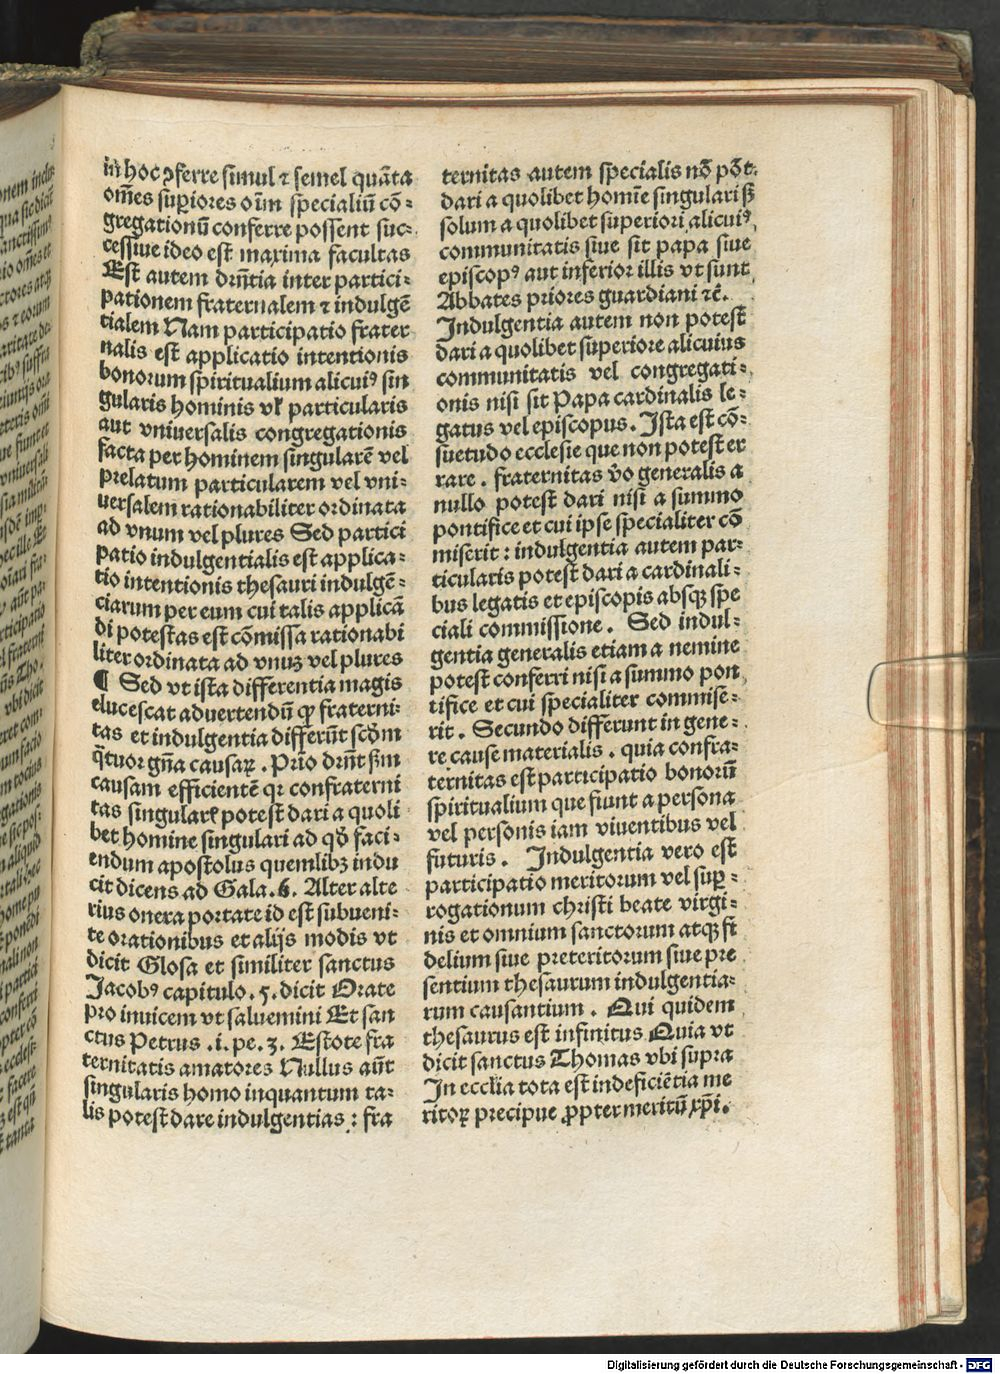 in hoc ꝯferre simul ⁊ semel quãta
om̃es supiores oĩm specialiũ cõ⸗
gregationũ conferre possent suc⸗
cessiue ideo est maxima facultas
Est autem drñtia inter partici⸗
pationem fraternalem ⁊ indulgẽ
tialem Nam participatio frater
nalis est applicatio intentionis
bonorum spiritualium alicuiꝰ sin
gularis hominis vl̓ particularis
aut vniuersalis congregationis
facta per hominem singularẽ vel
prelatum particularem vel vni⸗
uersalem rationabiliter ordinata
ad vnum vel plures Sed partici
patio indulgentialis est applica⸗
tio intentionis thesauri indulgẽ⸗
ciarum per eum cui talis applicã
di potestas est cõmissa rationabi
liter ordinata ad vnuꝫ vel plures
¶ Sed vt ista differentia magis
elucescat aduertendũ ꝙ fraterni⸗
tas et indulgentia differũt scd̓m
q̃tuor gñа causaꝝ. Prio drñt ßm
causam efficientẽ qꝛ confraterni
tas singularꝭ potest dari a quoli
bet homine singulari ad qd̓ faci⸗
endum apostolus quemlibꝫ indu
cit dicens ad Gala. 6. Alter alte
rius onera portate id est subueni⸗
te orationibus et alijs modis vt
dicit Glosa et similiter sanctus
Jacobꝰ capitulo. 5. dicit Orate
pro inuicem vt saluemini Et san
ctus Petrus .i. pe. 3. Estote fra
ternitatis amatores Nullus aũt
singularis homo inquantum ta⸗
lis potest dare indulgentias : fra
ternitas autem specialis nõ põt
dari a quolibet homĩe singulari sꝫ
solum a quolibet superiori alicuiꝰ
communitatis siue sit papa siue
episcopꝰ aut inferior illis vt sunt
Abbates priores guardiani ⁊c̃.
Indulgentia autem non potest
dari a quolibet superiore alicuius
communitatis vel congregati⸗
onis nisi sit Papa cardinalis le⸗
gatus vel episcopus. Ista est cõ⸗
suetudo ecclesie que non potest er
rare. fraternitas v̓o generalis a
nullo potest dari nisi a summo
pontifice et cui ipse specialiter cõ
miserit : indulgentia autem par⸗
ticularis potest dari a cardinali⸗
bus legatis et episcopis absqꝫ spe
ciali commissione. Sed indul⸗
gentia generalis etiam a nemine
potest conferri nisi a summo pon
tifice et cui specialiter commise⸗
rit. Secundo differunt in gene⸗
re cause materialis. quia confra⸗
ternitas est participatio bonorũ
spiritualium que fiunt a persona
vel personis iam viuentibus vel
futuris. Indulgentia vero est
participatio meritorum vel suꝑ⸗
rogationum christi beate virgi⸗
nis et omnium sanctorum atqꝫ fi
delium siue preteritorum siue pre
sentium thesaurum indulgentia⸗
rum causantium. Qui quidem
thesaurus est infinitus Quia vt
dicit sanctus Thomas vbi supra
In eccl̓ia tota est indeficiẽtia me
ritoꝝ precipue ꝓpter meritũ xp̃i.
Digitalisierung gefördert durch die Deutsche Forschungsgemeinschaft - DFG